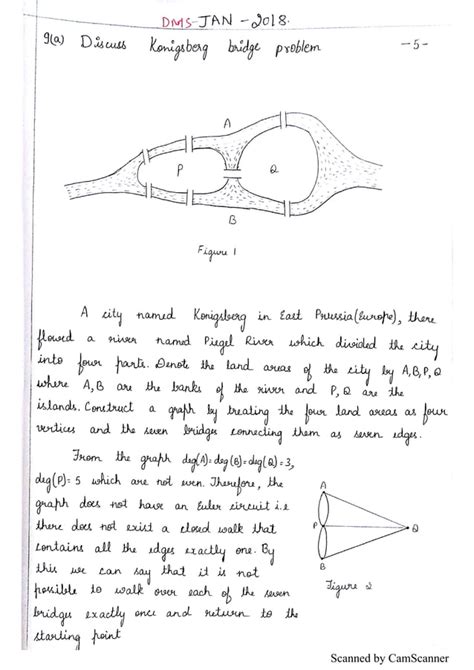 DMS-JAN - 2018.
9(a) Discuss Konigsberg bridge problem
-5-
A
P
Q
B
Figure 1
A city named Konigsberg in East Prussia(Europe), there
flowed a river named Piegel River which divided the city
into four parts. Denote the land areas of the city by A,B,P,Q
where A,B are the banks of the river and P,Q are the
islands. Construct a graph by treating the four land areas as four
vertices and the seven bridges connecting them as seven edges.
From the graph deg(A)=deg(B)=deg(Q)=3,
deg(P)=5 which are not even. Therefore, the
graph does not have an Euler circuit i.e
there does not exist a closed walk that
contains all the edges exactly one. By
this we can say that it is not
possible to walk over each of the seven
bridges exactly once and return to the
starting point
A
P
Q
B
Figure 2
Scanned by CamScanner